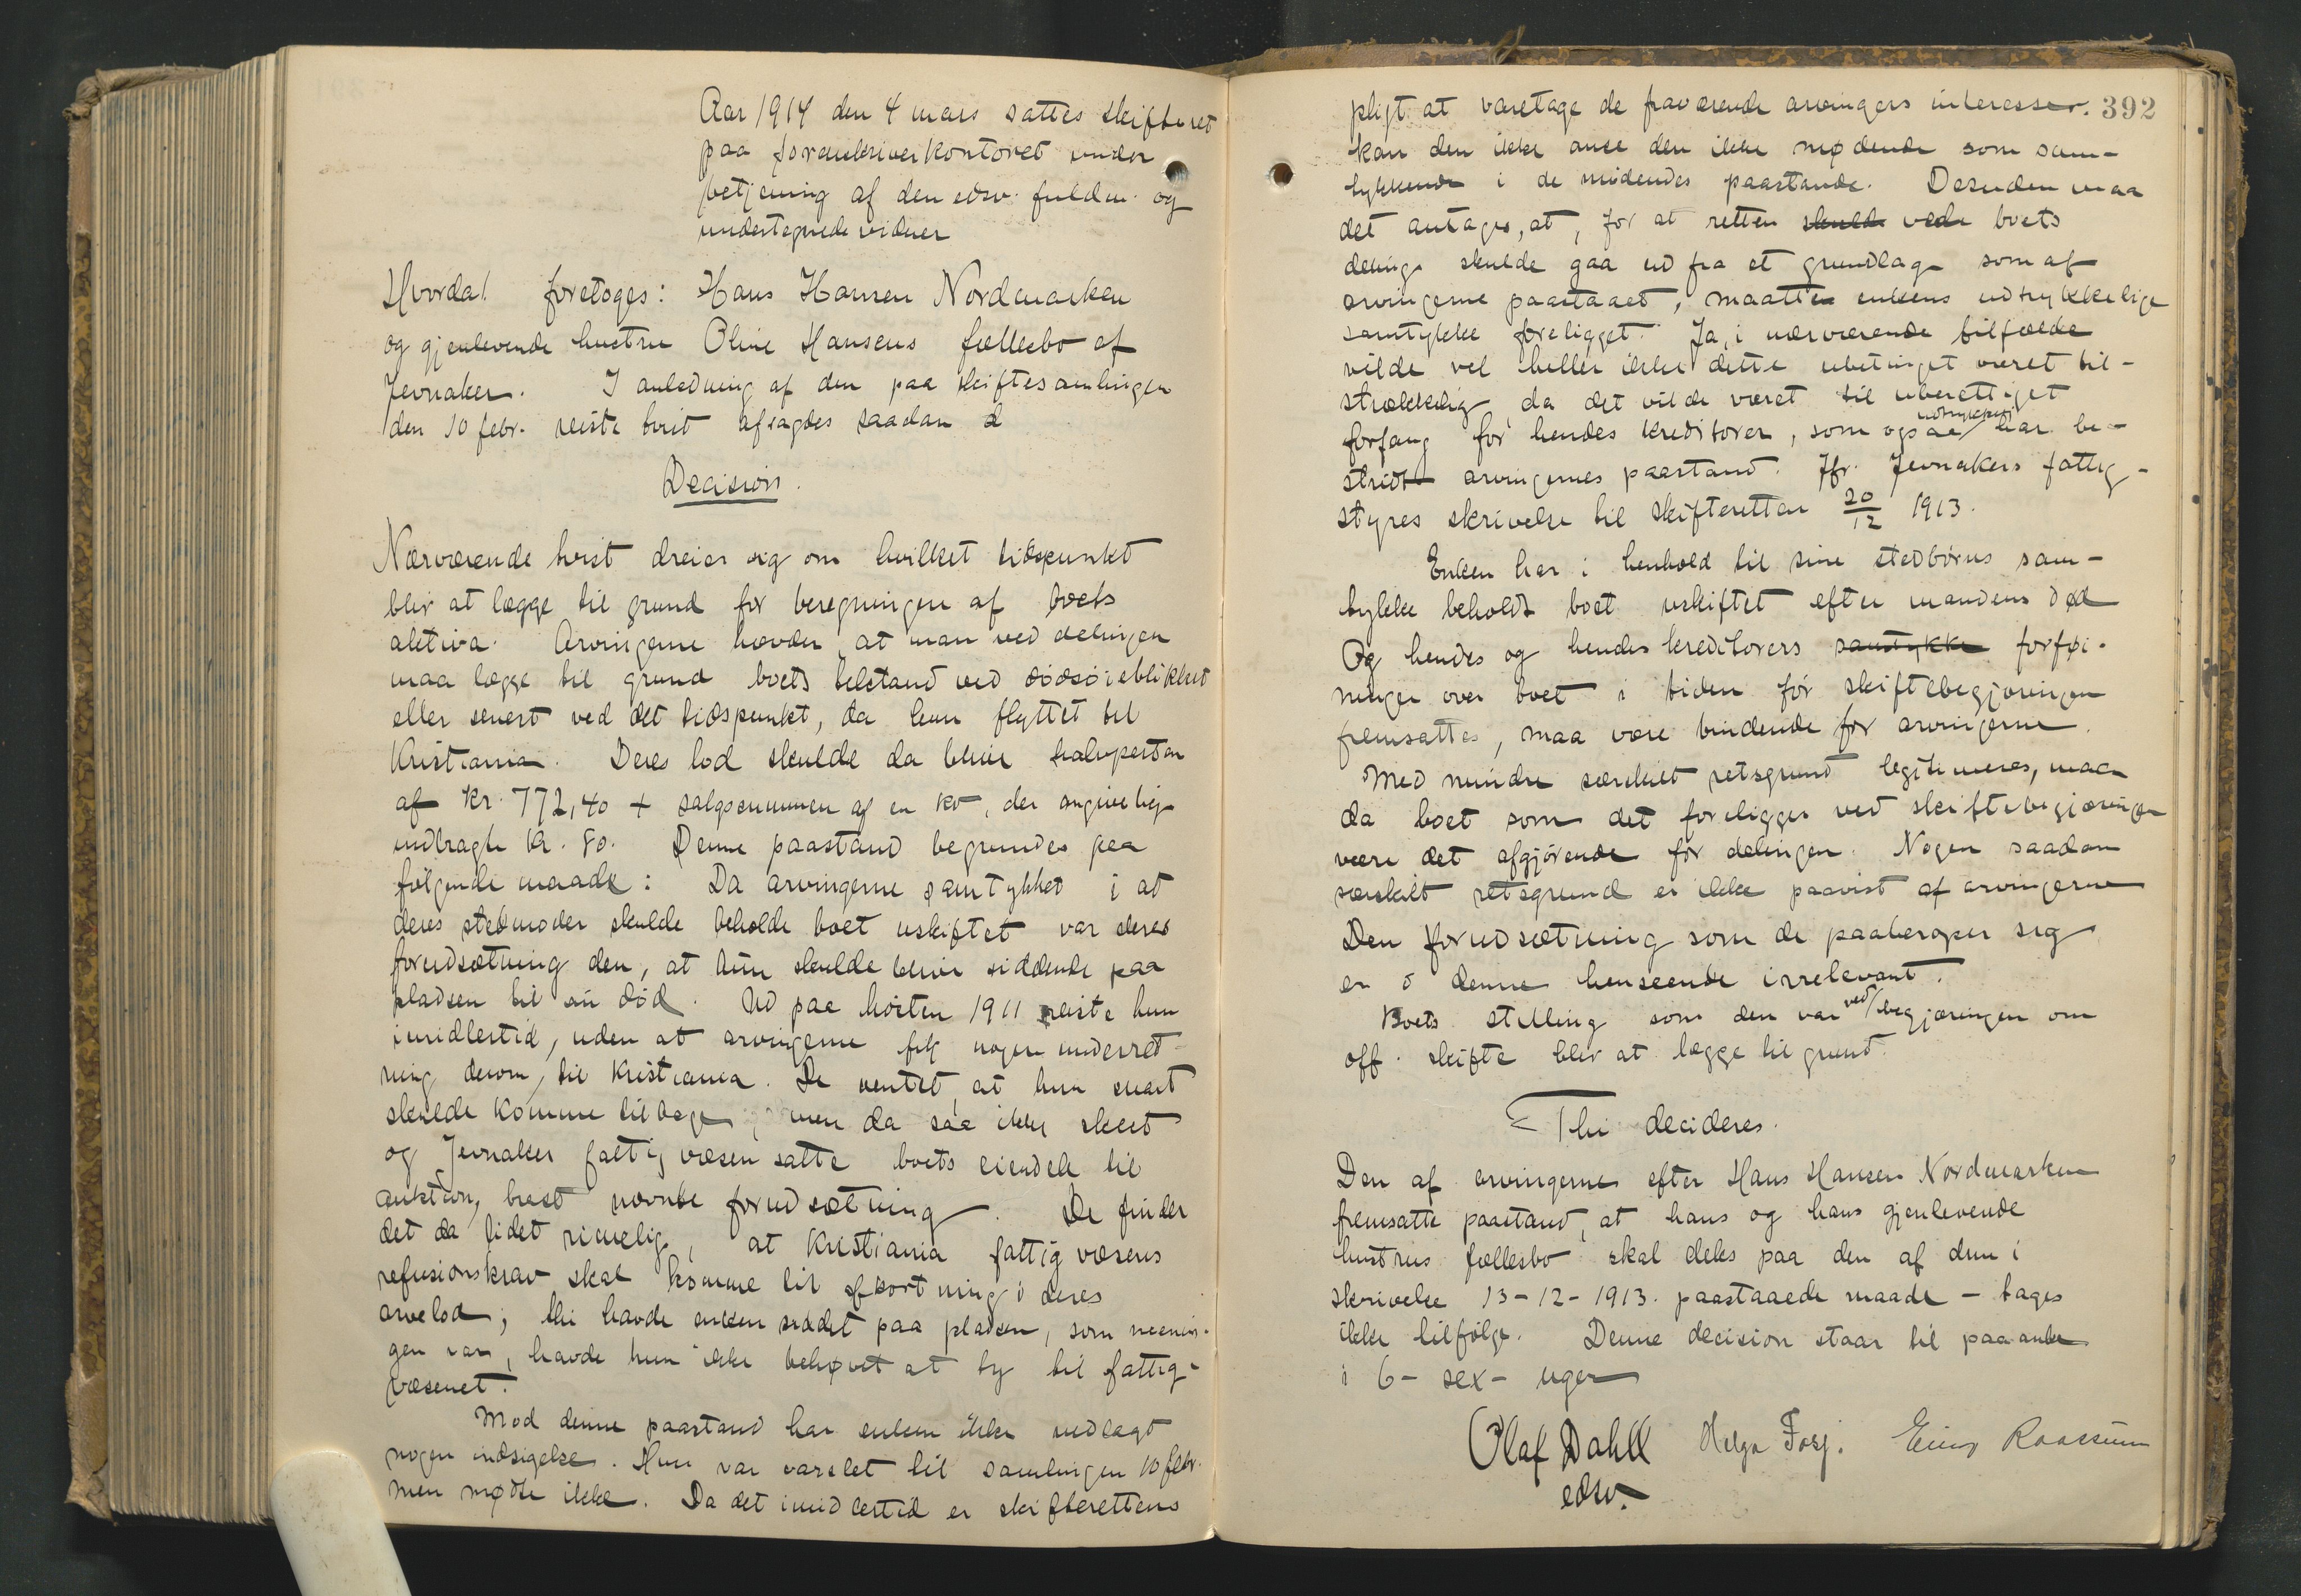 Aar 1914 den 4 mars sattes skifteret
paa sorenskriverkontoret under
betjening af den edsv. fuldm. og
undertegnede vidner
Hvorda! foretoges: Hans Hansen Nordmarken
og gjenlevende hustru Oline Hansens fællesbo af
Jevnaker. I anledning af den paa skiftesamlingen
den 10 febr. reiste tvist afsagdes saadan d
Decision.
Nærværende tvist dreier sig om hvilket tidspunkt
blir at lægge til grund for beregningen af boets
aktiva. Arvingerne hævder, at man ved delingen
maa lægge til grund boets tilstand ved dødsøieblikket
eller senest ved det tidspunkt, da hun flyttet til
Kristiania. Deres lod skulde da blive halvparten
af kr. 772,40 + salgssummen af en ko, der angivelig
indbragte kr. 80. Denne paastand begrundes paa
følgende maade: Da arvingerne samtykket i at
deres stedmoder skulde beholde boet uskiftet var deres
forudsætning den, at hun skulde blive siddende paa
pladsen til sin død. Ud paa høsten 1911 reiste hun
imidlertid, uden at arvingerne fik nogen underret-
ning derom, til Kristiania. De ventet, at hun snart
skulde komme tilbage, men da saa ikke skeet
og Jevnaker fattigvæsen satte boets eiendele til
auktion, brast nævnte forudsætning. De finder
det da lidet rimelig, at Kristiania fattigvæsens
refusionskrav skal komme til afkortning i deres
arvelod; thi havde enken siddet paa pladsen, som meenin-
gen var, havde hun ikke behøvet at ty til fattig-
væsenet.
Mod denne paastand har enken ikke nedlagt
nogen indsigelse. Hun var varslet til samlingen 10 febr.
men mødte ikke. Da det imidlertid er skifterettens
392
pligt at varetage de fraværende arvingers interesser.
kan den ikke anse den ikke mødende som sam-
tykkende i de mødendes paastande. Desuden maa
det antages, at, for at retten skulde vede boets
deling skulde gaa ud fra et grundlag som af
arvingerne paastaaet, maatte enkens udtrykkelige
samtykke foreligget. Ja, i nærværende tilfælde
vilde vel heller ikke dette ubetinget været til-
strækkelig, da det vilde været til uberettiget
forfang for hendes kreditorer, som ogsaa har be-
stridt arvingernes paastand. Jfr. Jevnakers fattig-
styres skrivelse til skifteretten 20/12 1913.
Enken har i henhold til sine stedbørns sam-
tykke beholdt boet uskiftet efter mandens død
Og hendes og hendes kreditorers samtykke forføi-
ninger over boet i tiden før skiftebegjæringen
fremsattes, maa være bindende for arvingerne.
Med mindre særskilt retsgrund legitimeres, maa
da boet som det foreligger ved skiftebegjæringen
være det afgjørende for delingen. Nogen saadan
særskilt retsgrund er ikke paavist af arvingerne
Den forudsætning som de paaberoper sig
er i denne henseende irrelevant.
Boets stilling som den var ved begjæringen om
off. skifte blir at lægge til grund.
Thi decideres.
Den af arvingerne efter Hans Hansen Nordmarken
fremsatte paastand, at hans og hans gjenlevende
hustrus fællesbo skal deles paa den af dem i
skrivelse 13-12-1913 paastaaede maade - tages
ikke tilfølge. Denne decision staar til paaanke
i 6 - sex - uger
Olaf Dahll Helga Fosj.
edsv.